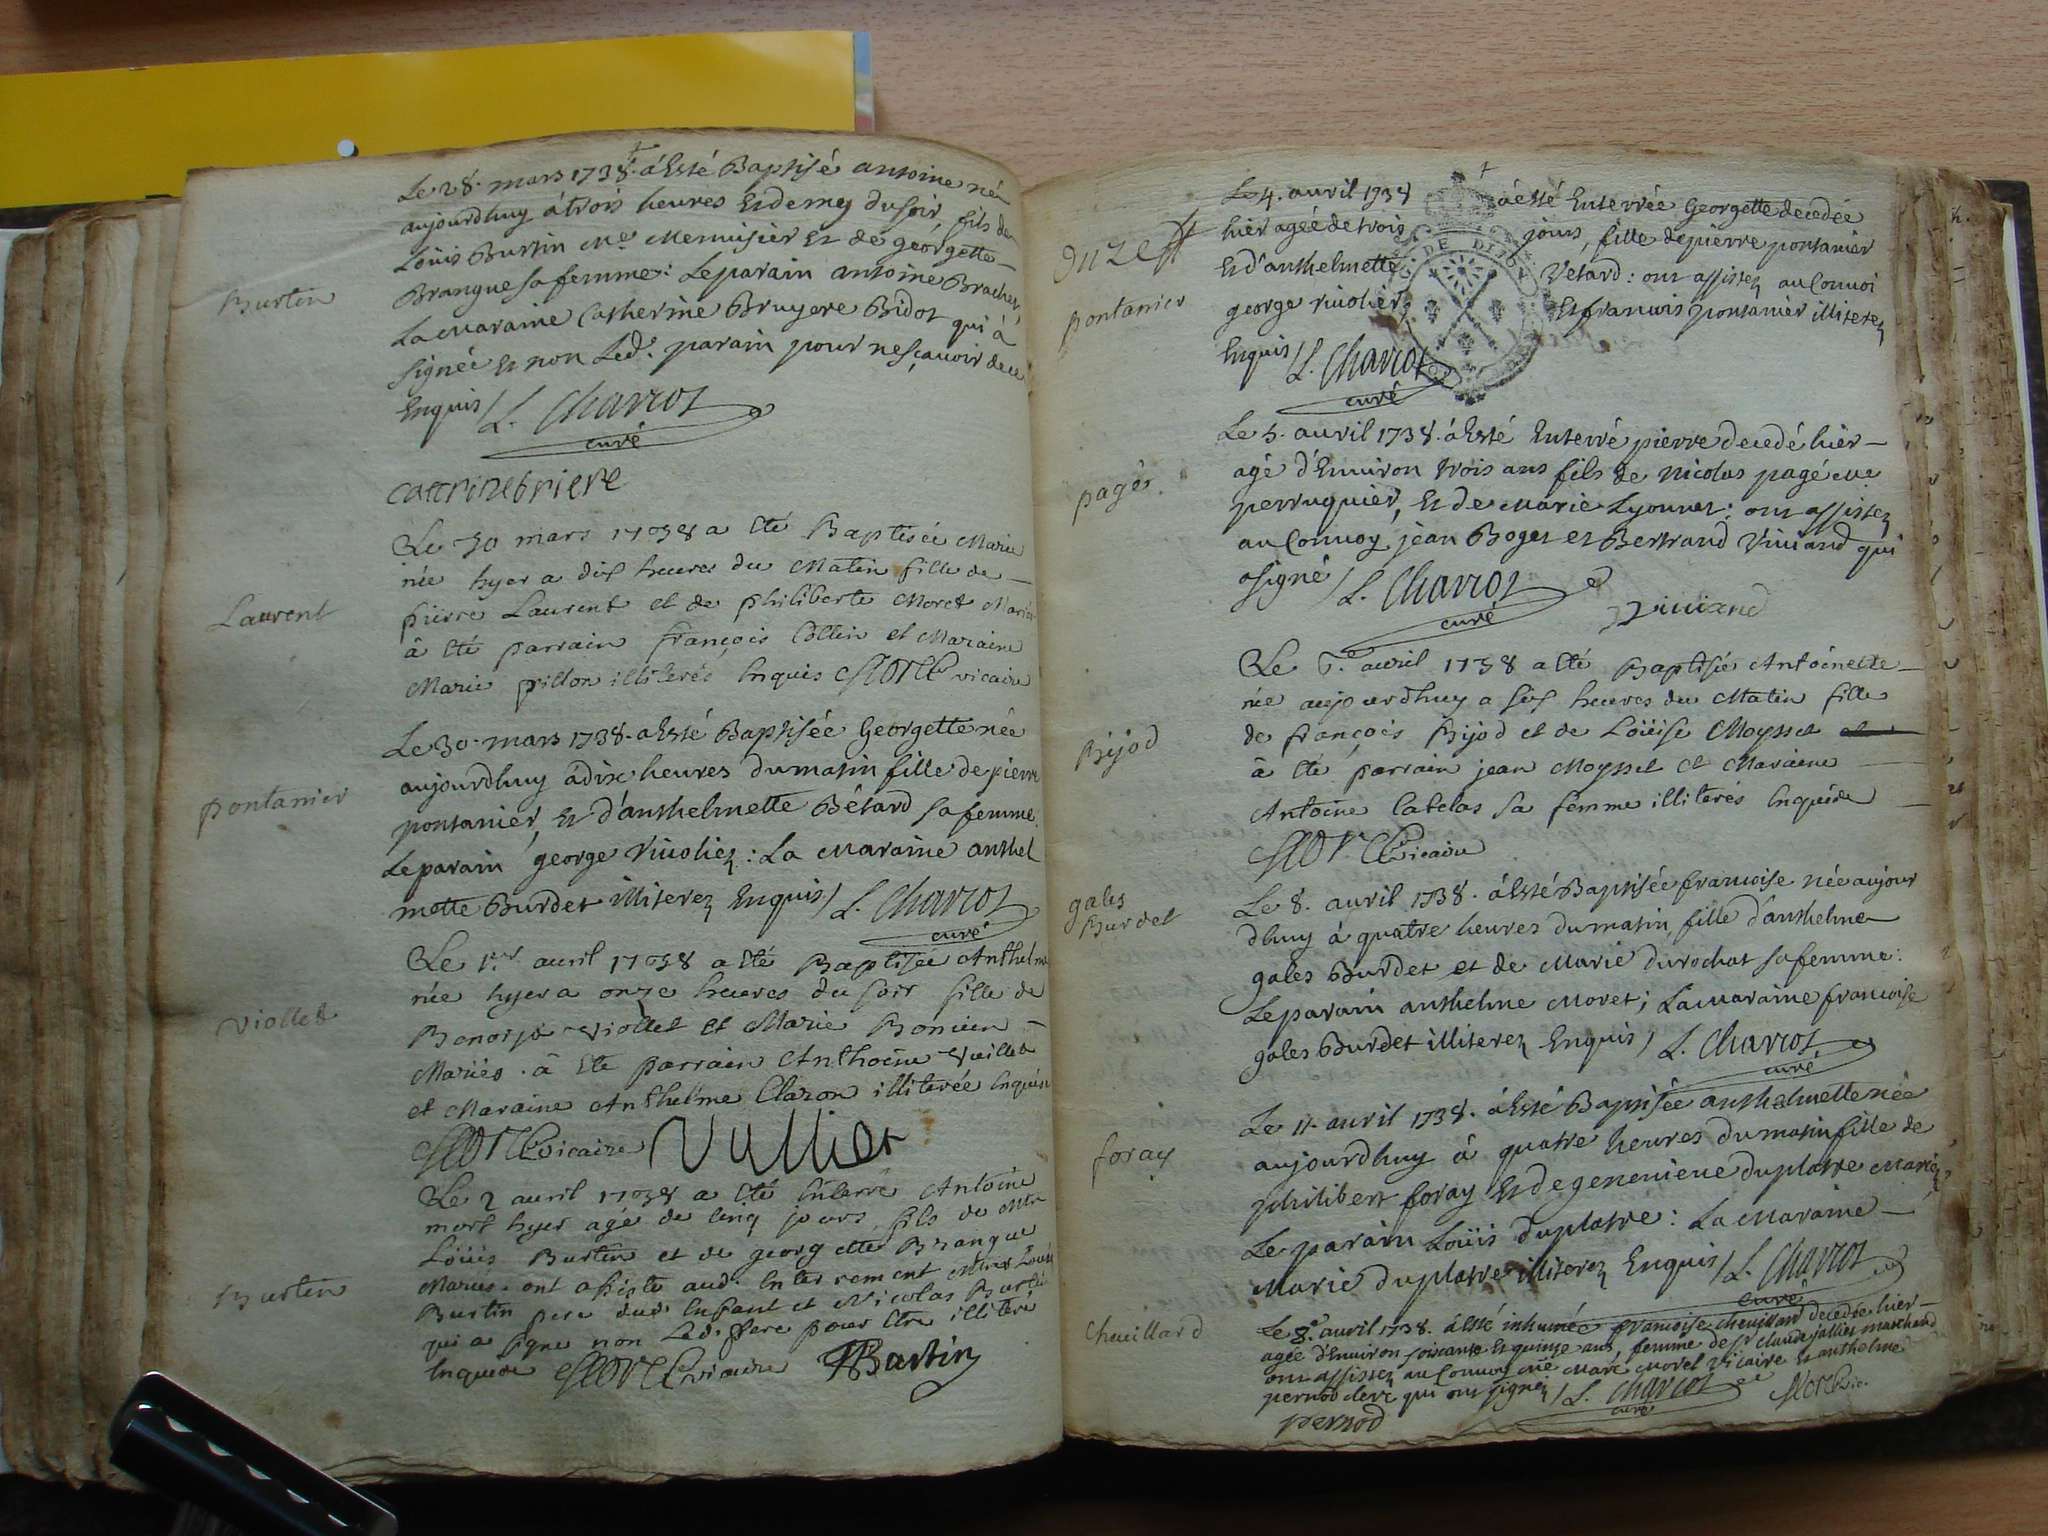 Burtin
Le 28. mars 1738. à Esté Baptisé antoine né
aujourdhuy à trois heures Et demy du soir, fils de
Loüis Burtin Me. Menuisier Et de georgette
Brangue sa femme: Le parain antoine Bracher,
La maraine Catherine Bruyere Bidot qui à
signée Et non Led. parain pour ne sçauoir de ce
Enquis / L. Charcot
curé
cattrinebriere
Laurent
Le 30 mars 1738 a Eté Baptisée Marie
née hyer a dix heures du Matin fille de
pierre Laurent et de philiberte Moret Mariés
à Eté parrain françois Cottin et Maraine
Marie pillon illiterés Enquis Moret vicaire
pontanier
Le 30. mars 1738. a Esté Baptisée Georgette née
aujourdhuy à dix heures du matin fille de pierre
pontanier, Et d'anthelmette Bétard sa femme.
Le parain george Viuoliez: La Maraine anthel
mette Burdet illiterez Enquis / L. Charcot
curé
viollet
Le 1er. auril 1738 a Eté Baptisée Anthelme
née hyer a onze heures du soir fille de
Benoist viollet et Marie Bonieu
Mariés. à Ete parrain Anthoine Vuillet
et Maraine Anthelme Claron illiterée Enquise
Moret vicaire Vullier
Burtin
Le 2 auril 1738 a Eté Enterré Antoine
mort hyer agé de Cinq jours, fils de Mtre
Loüis Burtin et de georgette Brangue
Mariés. ont assisté aud. Enterrement Mtre Loüis
Burtin pere dud. Enfant et Nicolas Burtin
qui a signe non Ledi. pere pour Etre illiteré
Enquere Moret vicaire NBurtin
onze ff
pontanier
Le 4. auril 1738 à Esté Enterrée Georgette decedée
hier ageé de trois jours, fille de pierre pontanier
Et d'anthelmette Vetard: ont assistez au Conuoi
george viuoliez Et francois pontanier illiterez
Enquis / L. Charcot
curé
DE DI
pagés
Le 5. auril 1738. à Esté Enterré pierre decedé hier
agé d'Enuiron trois ans fils de Nicolas pagé me
perruquier, Et de Marie Lyonnet: ont assistez
au Conuoy jean Boget et Bertrand Viuiand qui
a signé / L. Charcot
curé
Viuiand
Bijod
Le 6.e auril 1738 a Eté Baptisée Antoinette
née aujourdhuy a six heures du Matin fille
de françois Bijod et de Loüise Moysset
à Eté parrain jean Moysset et Maraine
Antoine Catelas sa femme illiterés Enquére
Moret Vicaire
gales
Burdet
Le 8. auril 1738. à Esté Baptisée francoise née aujour
dhuy à quatre heures du matin, fille d'anthelme
gales Burdet et de Marie durochat sa femme:
Le parain anthelme Moret; La Maraine francoise
gales Burdet illiterez Enquis / L. Charcot
curé
foray
Le 11. auril 1738. à Esté Baptisée anthelmette née
aujourdhuy à quatre heures du matin fille de
philibert foray Et de geneuieue duplatre Mariez,
Le parain Loüis duplatre: La Maraine
Marie duplatre illiterez Enquis / L. Charcot
curé
Cheuillard
Le 8e. auril 1738. à Esté inhumée francoise cheuillard decedée hier
agée d'Enuiron soixante Et quinze ans, femme de sr claude jallier marchand
ont assistez au Conuoy me Marc Moret Vicaire Et anthelme
pernod clerc qui ont signéz / L. Charcot Moret Vic.
curé
pernod